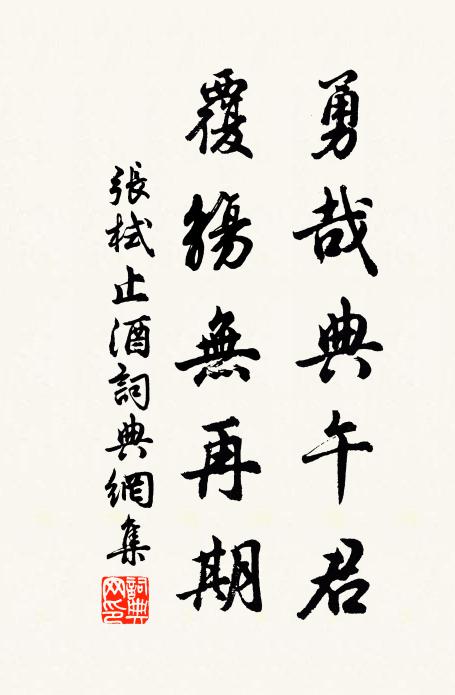 勇哉典午君
覆觴無再期
張栻止酒詞典網集
詞典網印